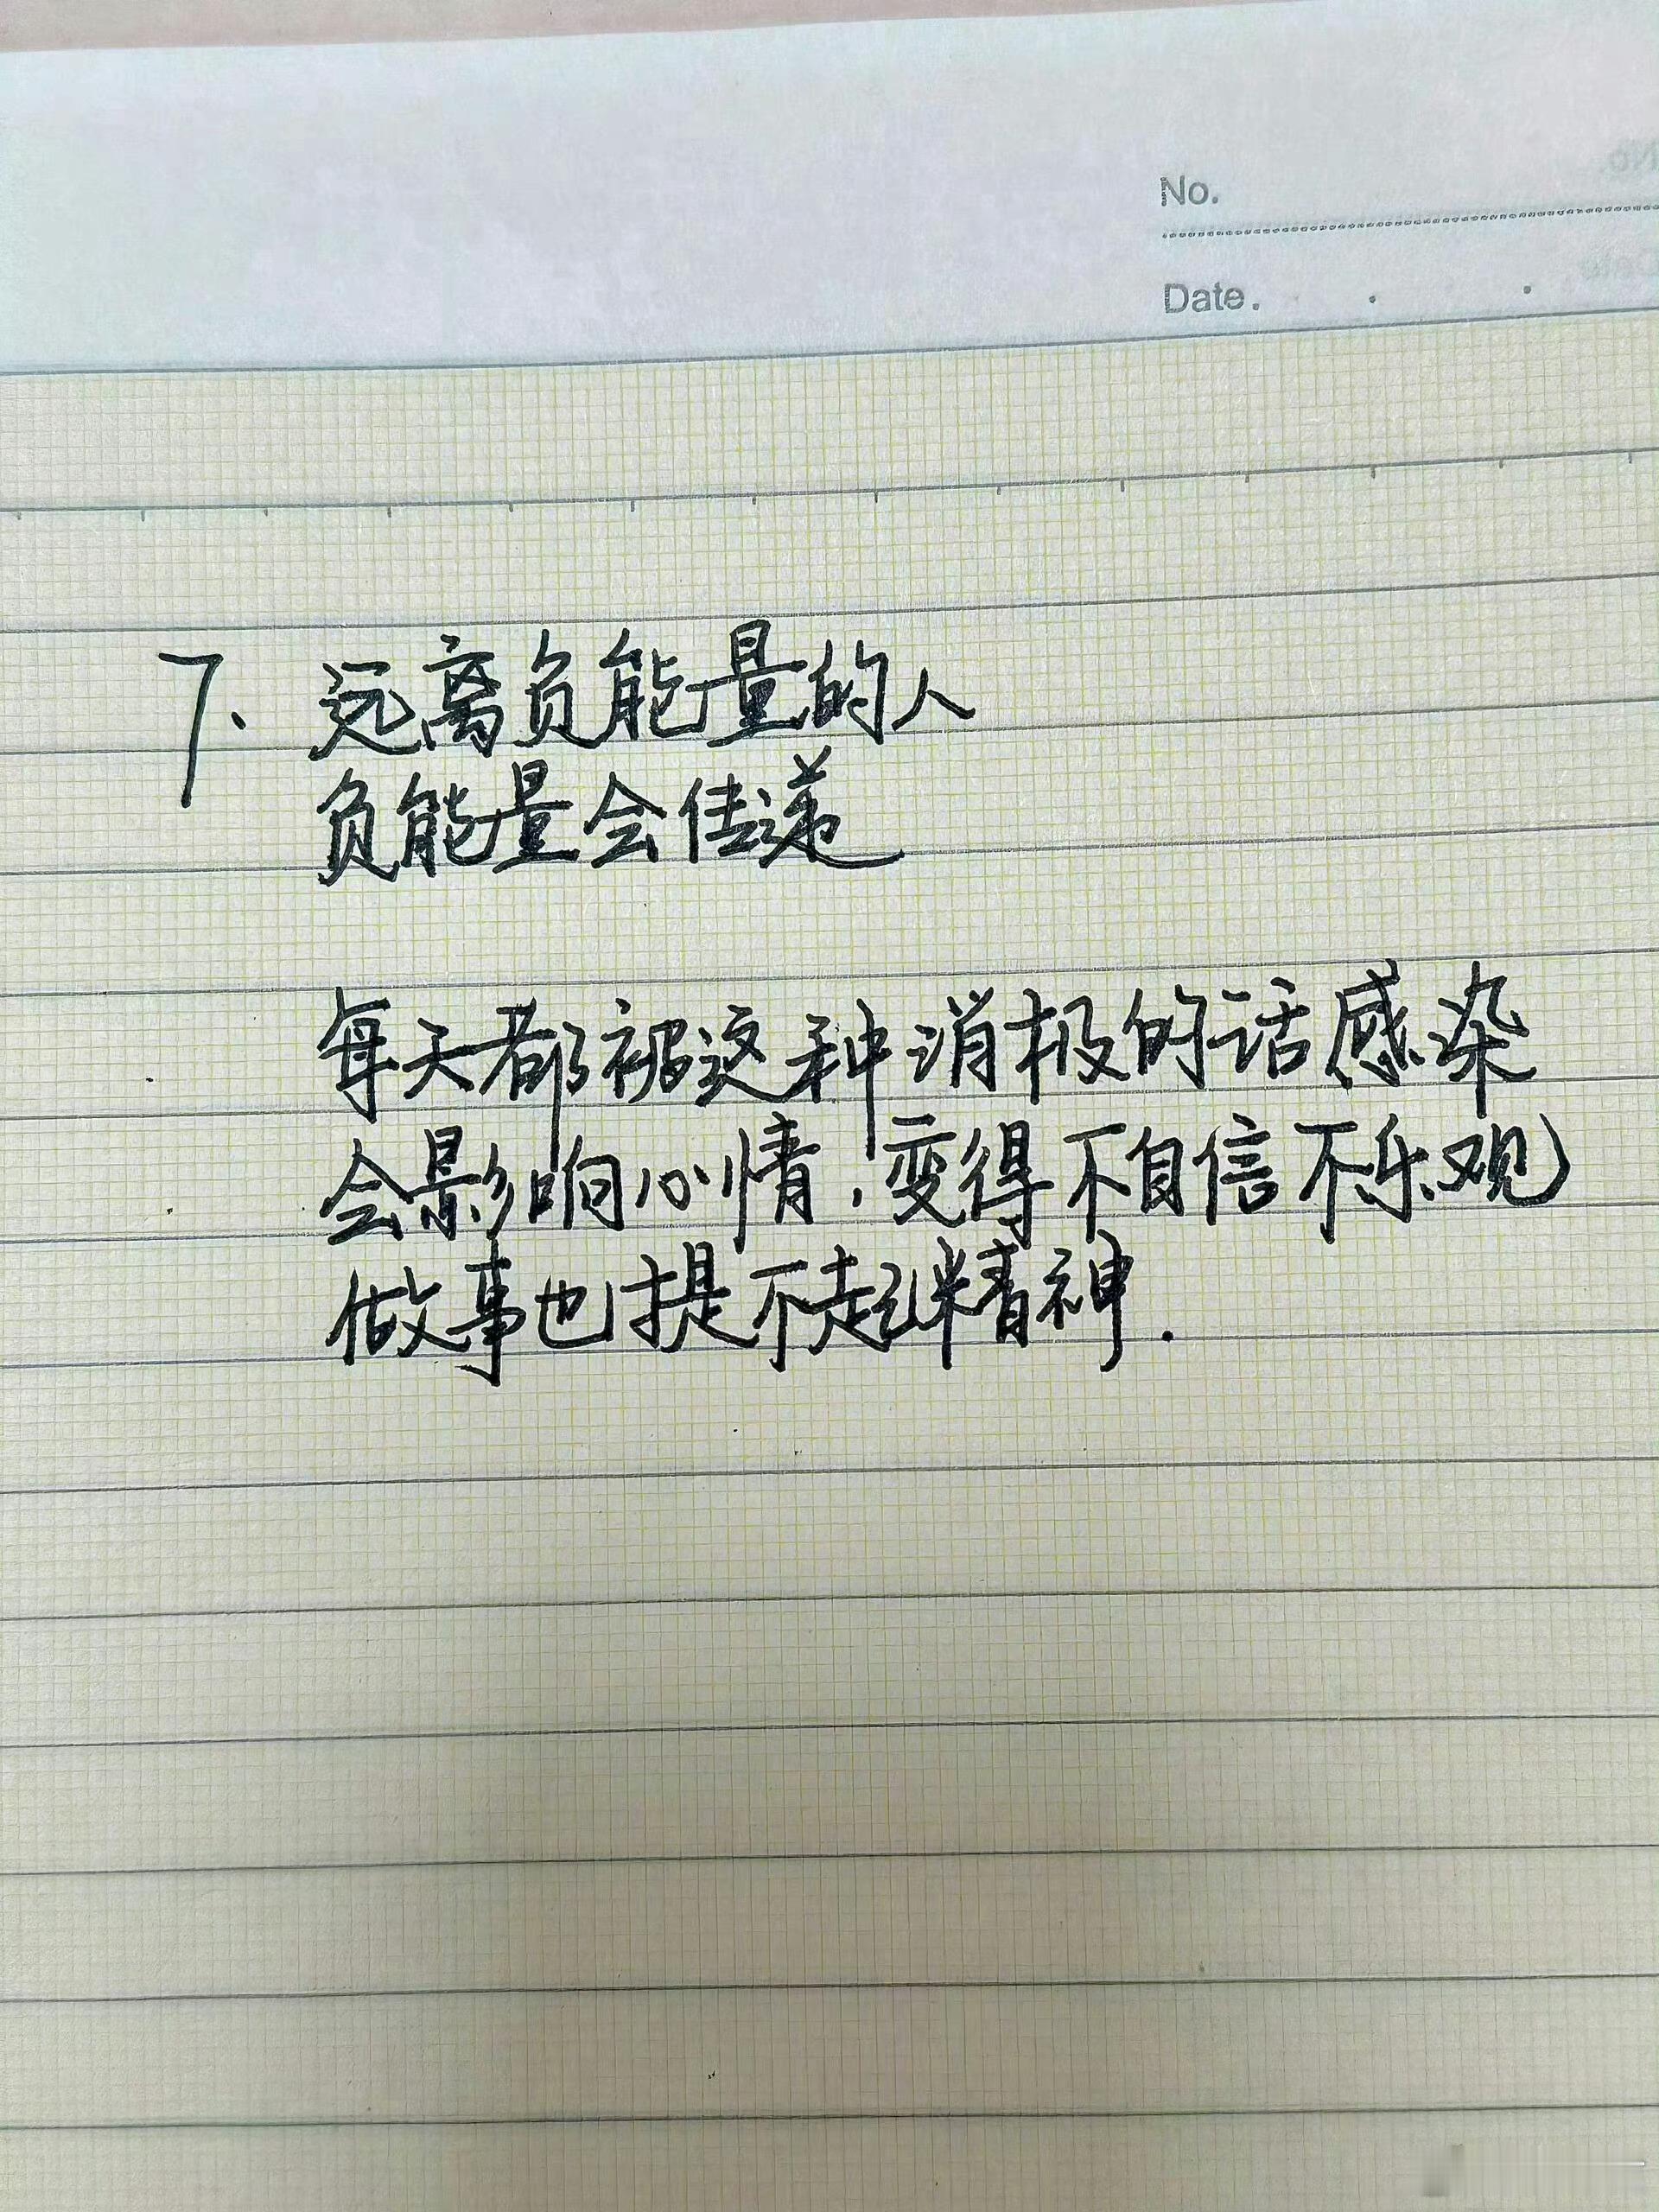 No.
Date.
7、远离负能量的人
负能量会传递
每天都被这种消极的话感染
会影响心情,变得不自信不乐观
做事也提不起精神.